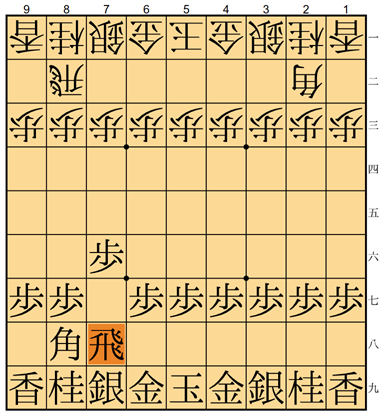 9 8 7 6 5 4 3 2 1
香 桂 銀 金 王 金 銀 桂 香 一
飛 角 二
歩 歩 歩 歩 歩 歩 歩 歩 歩 三
四
五
歩 六
歩 歩 歩 歩 歩 歩 歩 歩 七
角 飛 八
香 桂 銀 金 玉 金 銀 桂 香 九